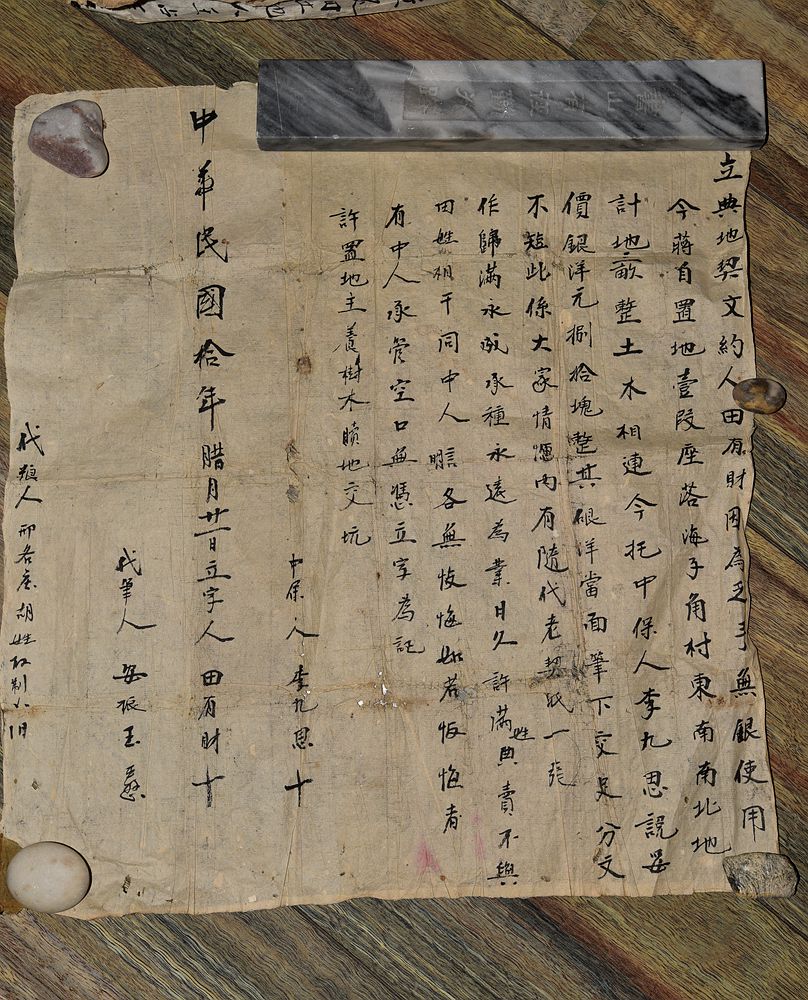 立典地契文約人田有財因為乏手無銀使用
今蔣自置地壹段座落海子角村東南南北地
計地畝整土木相連今托中保人李九思說妥
價銀洋元捌拾塊整其銀洋當面筆下交足分文
不短此係大家情愿內有隨代老契紙一張
作歸滿永成承種永遠為業日久許滿姓典賣不與
田姓相干同中人 各無恢悔如若恢悔者
有中人承管空口無憑立字為記
許置地主養樹木贖地交坑
中保人 李九思 十
中華民國拾年腊月廿日立字人 田有財 十
代筆人 安振玉
代 人 邢各庄胡姓
書山有 勤